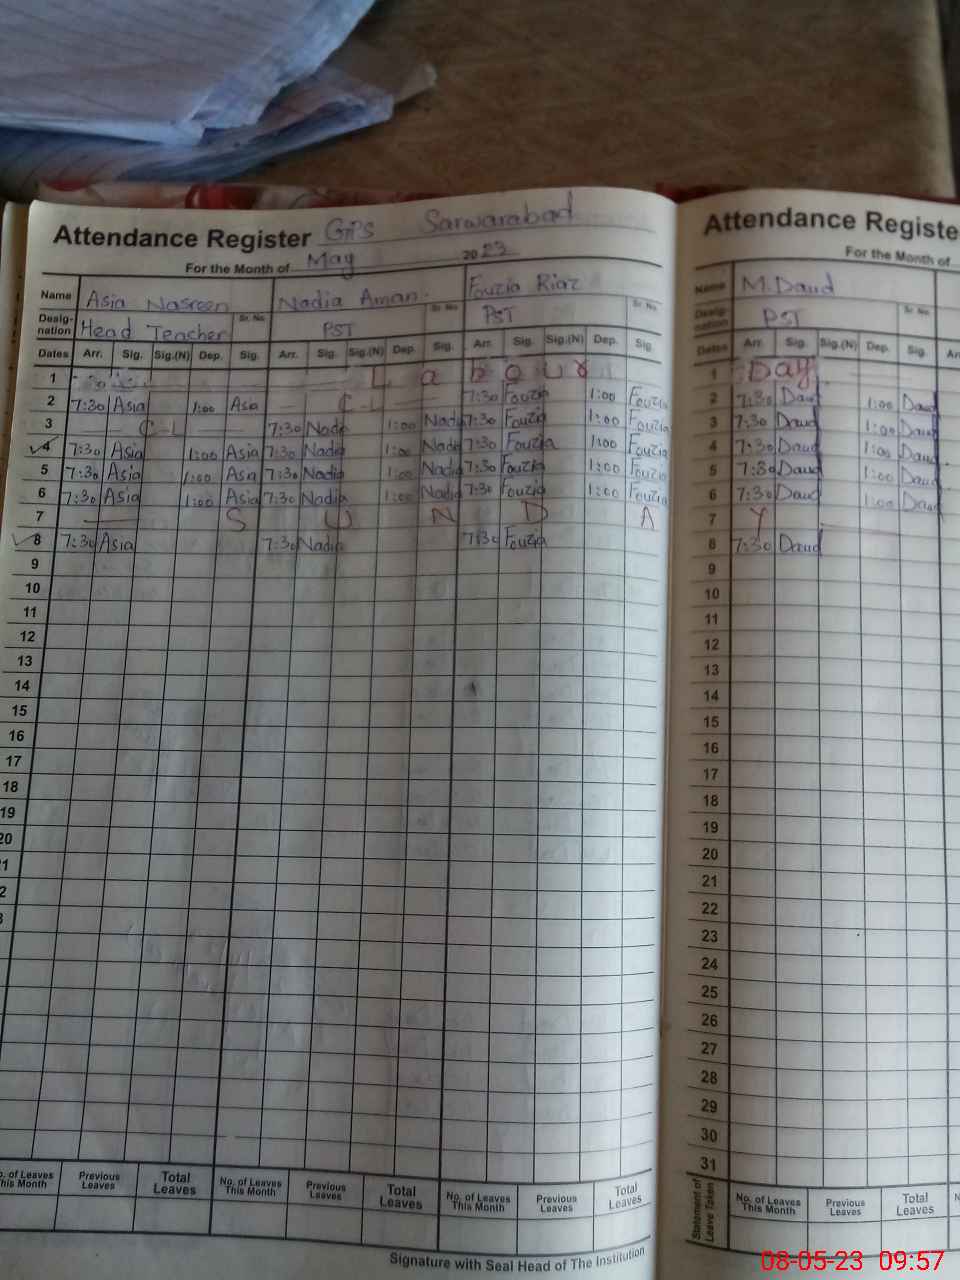 Attendance Register GPS Sarwarabad
For the Month of May 2023
Name Asia Nasreen Nadia Aman. Fouzia Riaz
Desig-nation Head Teacher Sr. No. PST Sr. No. PST Sr. No.
Dates Arr. Sig. Sig.(N) Dep. Sig. Arr. Sig. Sig.(N) Dep. Sig. Arr. Sig. Sig.(N) Dep. Sig.
1 L a b o u r
2 7:30 Asia 1:00 Asia C- 7:30 Fouzia 1:00 Fouzia
3 C-L 7:30 Nadia 1:00 Nadia 7:30 Fouzia 1:00 Fouzia
4 7:30 Asia 1:00 Asia 7:30 Nadia 1:00 Nadia 7:30 Fouzia 1:00 Fouzia
5 7:30 Asia 1:00 Asia 7:30 Nadia 1:00 Nadia 7:30 Fouzia 1:00 Fouzia
6 7:30 Asia 1:00 Asia 7:30 Nadia 1:00 Nadia 7:30 Fouzia 1:00 Fouzia
7 S U N D A
8 7:30 Asia 7:30 Nadia 7:30 Fouzia
9
10
11
12
13
14
15
16
17
18
19
20
21
No. of Leaves This Month Previous Leaves Total Leaves No. of Leaves This Month Previous Leaves Total Leaves No. of Leaves This Month Previous Leaves Total Leaves
Signature with Seal Head of The Institution
Attendance Registe
For the Month of
Name M. Daud
Desig-nation PST Sr. No.
Dates Arr. Sig. Sig.(N) Dep. Sig. Arr
1 Day
2 7:30 Daud 1:00 Daud
3 7:30 Daud 1:00 Daud
4 7:30 Daud 1:00 Daud
5 7:30 Daud 1:00 Daud
6 7:30 Daud 1:00 Daud
7 Y
8 7:30 Daud
9
10
11
12
13
14
15
16
17
18
19
20
21
22
23
24
25
26
27
28
29
30
31
Statement of Leave Taken No. of Leaves This Month Previous Leaves Total Leaves
08-05-23 09:57